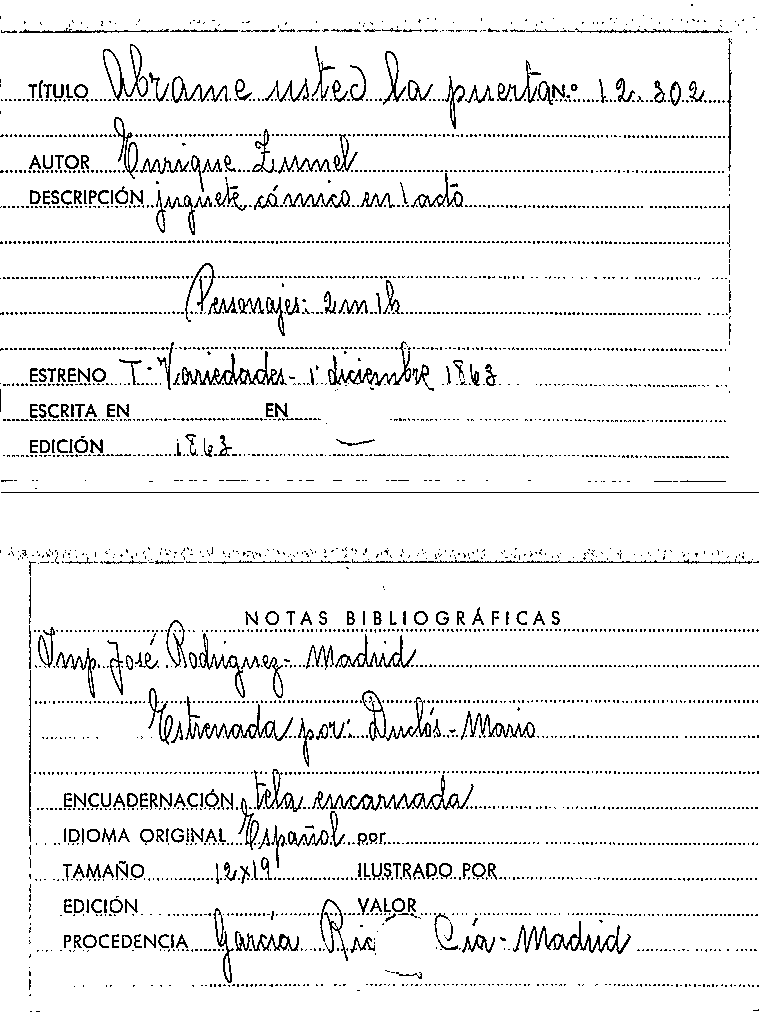 TÍTULO Abrame usted la puerta N.º 12.302
AUTOR Enrique Zumel
DESCRIPCIÓN juguete cómico en 1 acto
Personajes: 2 m 1 h
ESTRENO T. Variedades - 1 diciembre 1863
ESCRITA EN EN
EDICIÓN 1863
NOTAS BIBLIOGRÁFICAS
Imp José Rodriguez - Madrid
Estrenada por: Duclós - Mario
ENCUADERNACIÓN tela encarnada
IDIOMA ORIGINAL Español por
TAMAÑO 12x19 ILUSTRADO POR
EDICIÓN VALOR
PROCEDENCIA García Ric Cía - Madrid